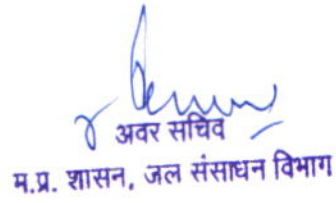 अवर सचिव
म.प्र. शासन, जल संसाधन विभाग